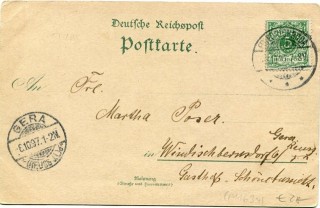 Deutsche Reichspost
Postkarte.
An Frl.
Martha Poser.
Gera
GERA
6.10.97. 1-2N.
(REUSS)
in Windischbernsdorf
Gasthof. Schönaussicht
Wohnung
(Straße und Hausnummer)